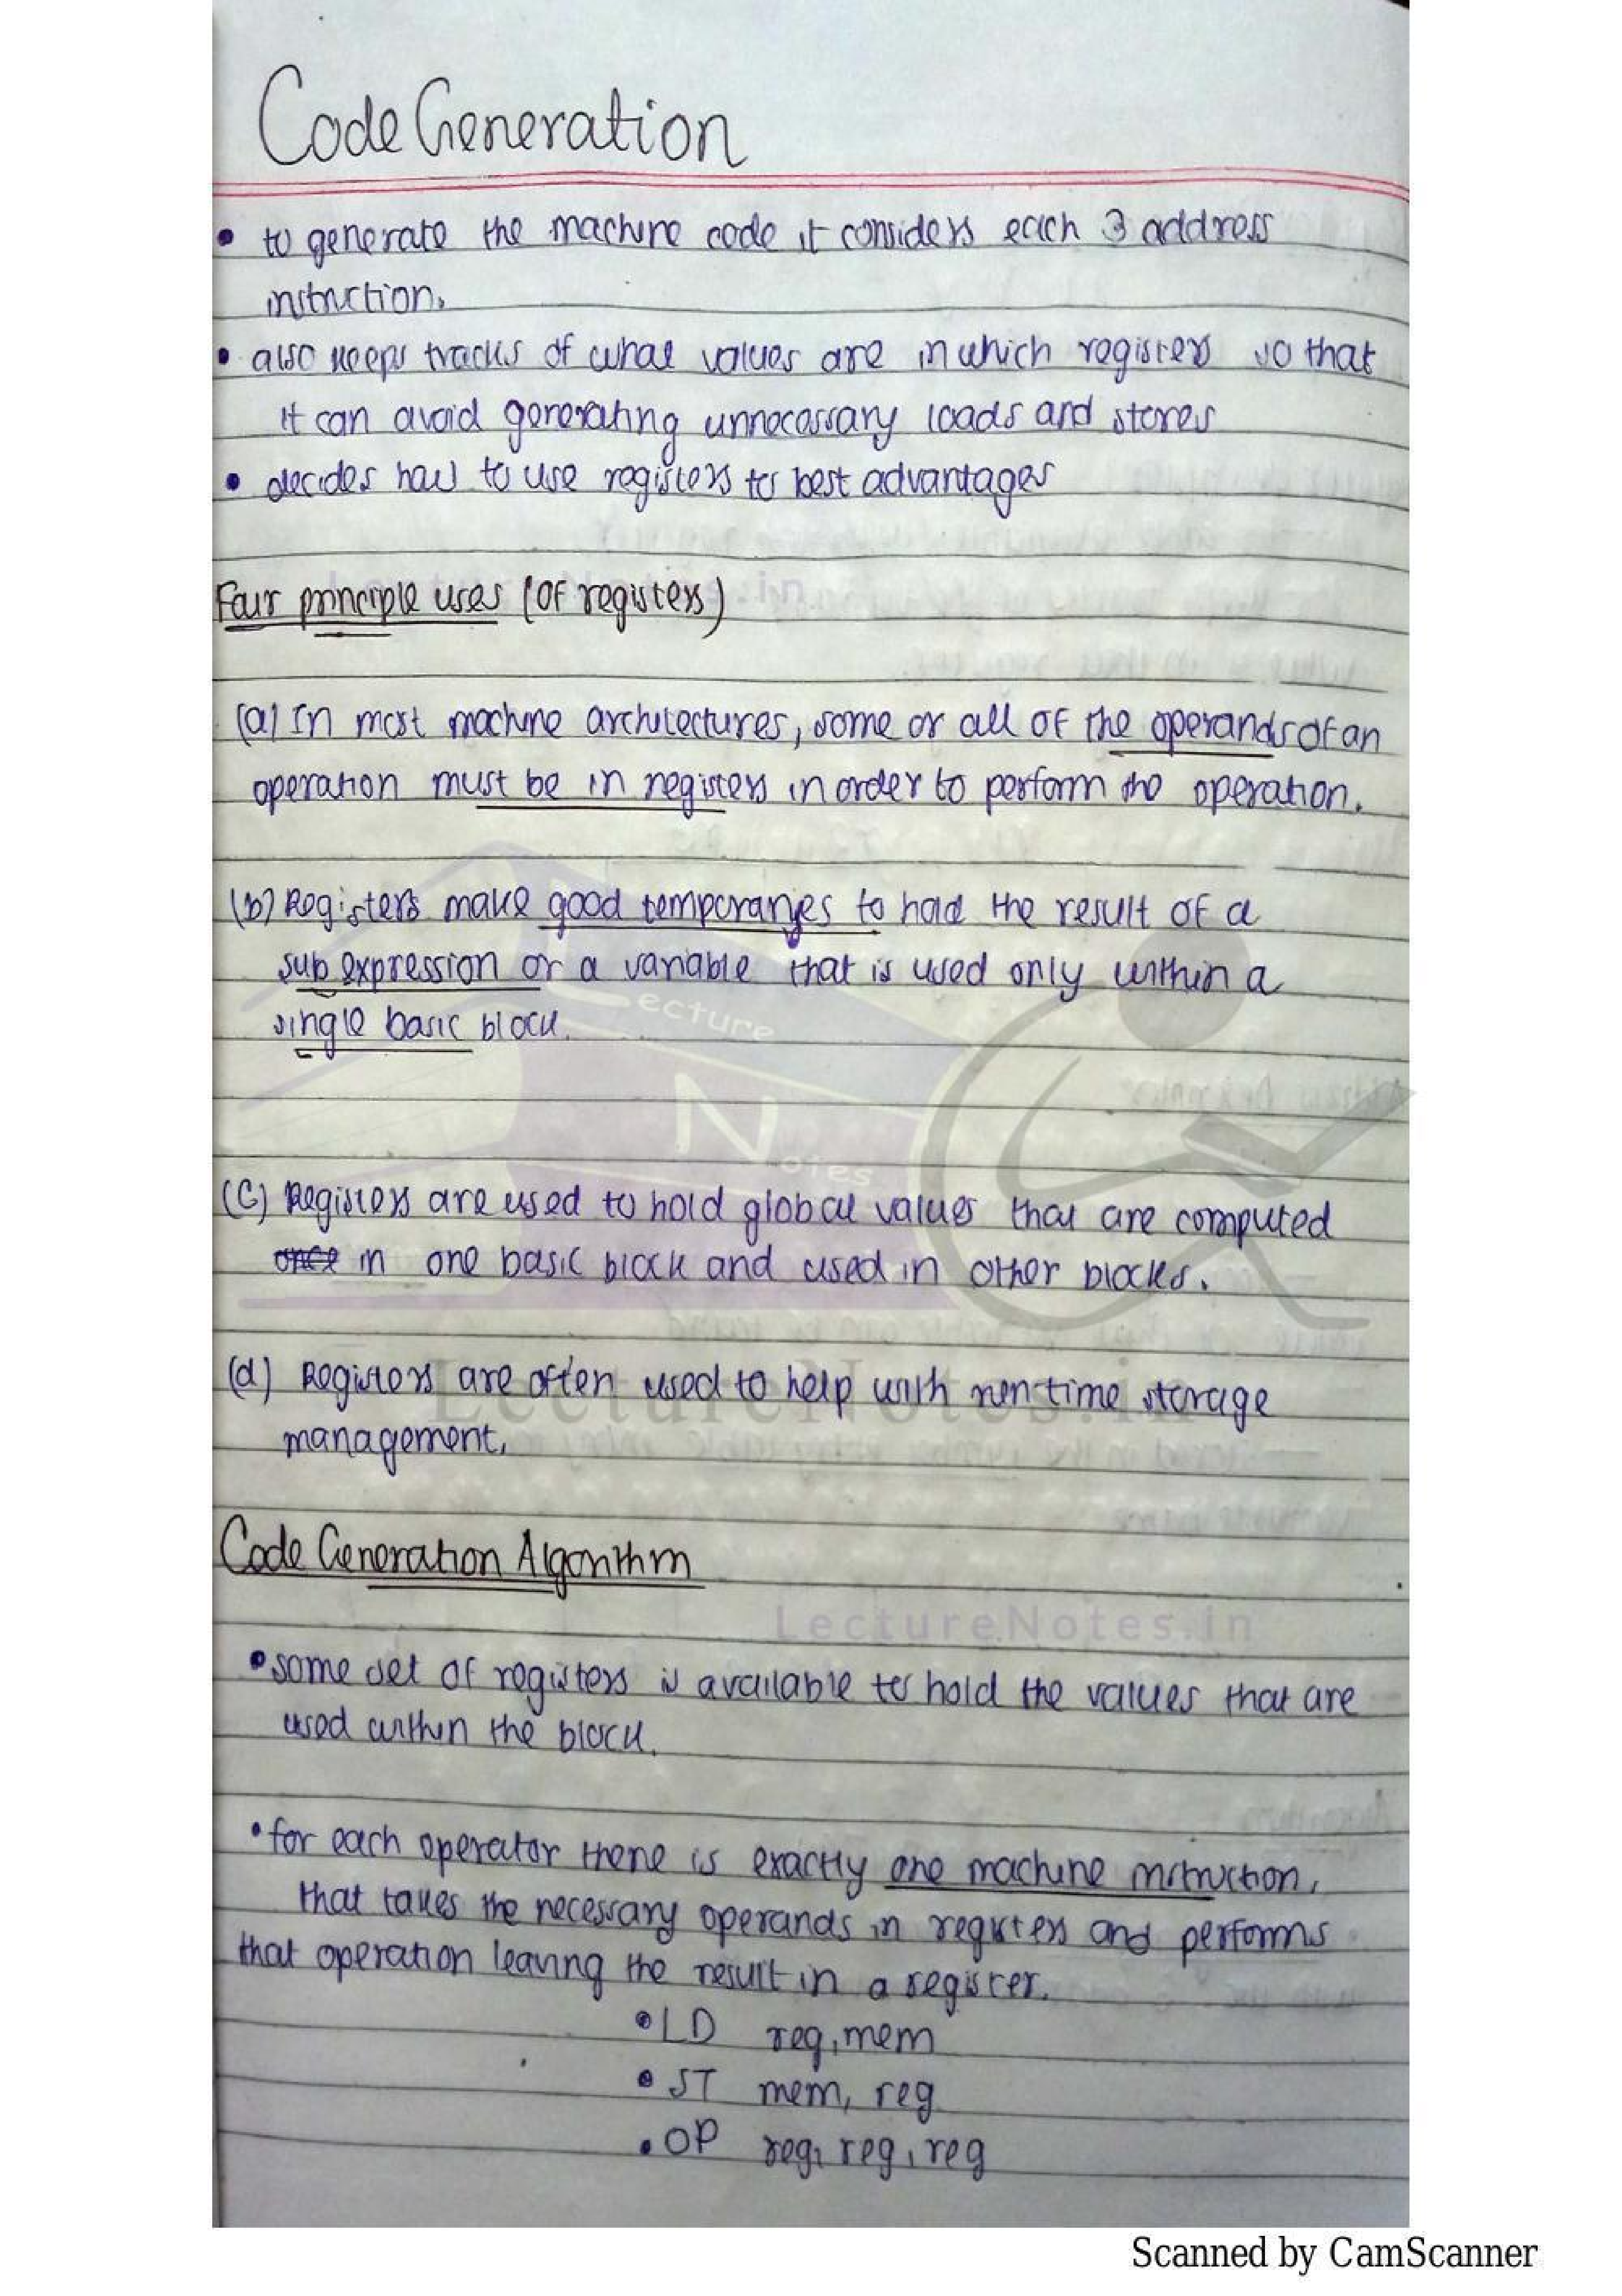 Code Generation
• to generate the machine code it considers each 3 address
instruction.
• also keeps tracks of what values are in which registers so that
it can avoid generating unnecessary loads and stores
• decides how to use registers to best advantages
Four principle uses (of registers)
(a) In most machine architectures, some or all of the operands of an
operation must be in registers in order to perform the operation.
(b) Registers make good temporaries to hold the result of a
sub expression or a variable that is used only within a
single basic block.
(c) Registers are used to hold global values that are computed
once in one basic block and used in other blocks.
(d) Registers are often used to help with run-time storage
management.
Code Generation Algorithm
• some set of registers is available to hold the values that are
used within the block.
• for each operator there is exactly one machine instruction,
that takes the necessary operands in registers and performs
that operation leaving the result in a register.
• LD reg, mem
• ST mem, reg
• OP reg, reg, reg
Lecture
Notes
LectureNotes.in
LectureNotes.in
LectureNotes.in
Scanned by CamScanner